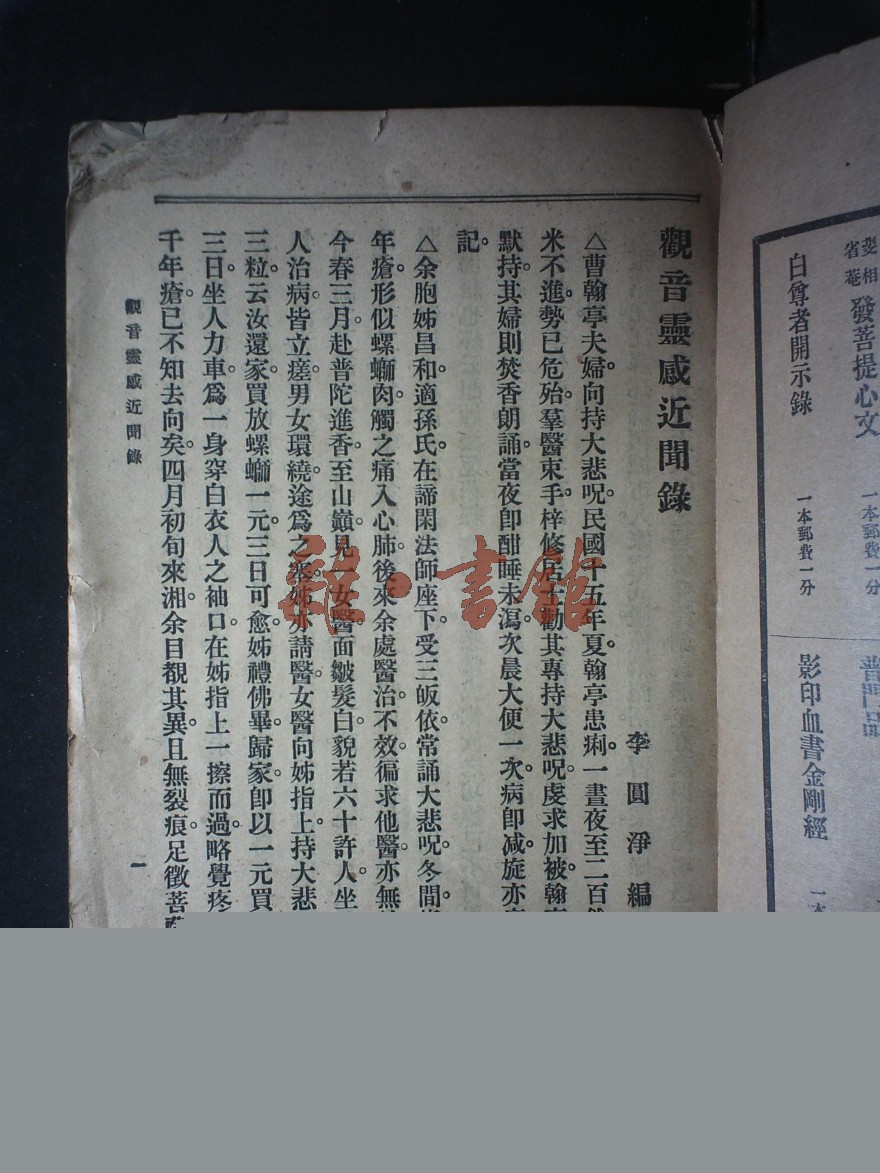 斐相
省菴 發菩提心文 一本郵費一分
普門品
白尊者開示錄 一本郵費一分
影印血書金剛經 一本
觀音靈感近聞錄
李圓淨編
△曹翰亭夫婦。向持大悲呪。民國十五年夏。翰亭患痢。一晝夜至二百
米不進。勢已危殆。羣醫束手。梓修居士勸其專持大悲呪。虔求加被。翰
默持。其婦則焚香朗誦。當夜卽酣睡未瀉。次晨大便一次。病卽减。旋亦
記。
△余胞姊昌和。適孫氏。在諦閑法師座下。受三皈依。常誦大悲呪。冬間
年瘡。形似螺螄肉。觸之痛入心肺。後來余處醫治。不效。徧求他醫。亦無
今春三月。赴普陀進香。至山巔。見一女醫。面皺髮白。貌若六十許人。坐
人治病。皆立瘥。男女環繞。途爲之塞。姊亦請醫。女醫向姊指上。持大悲
三粒。云汝還家。買放螺螄一元。三日可愈。姊禮佛畢。歸家。卽以一元買
三日。坐人力車。爲一身穿白衣人之袖口。在姊指上一擦而過。略覺疼
千年瘡已不知去向矣。四月初旬來湘。余目覩其異。且無裂痕。足徵菩
觀音靈感近聞錄 一
雜·書館